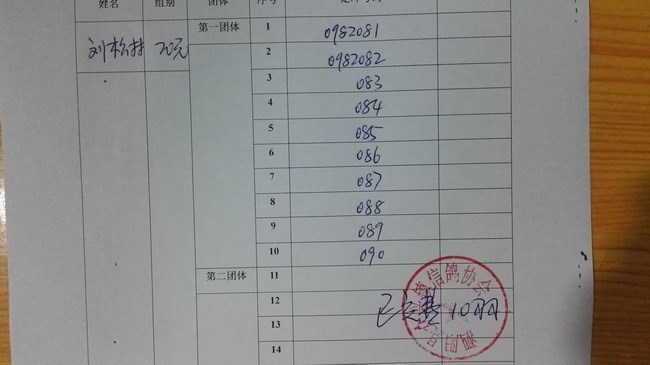 姓名 组别 团体 序号
第一团体 1 0982081
刘松林 20元 2 0982082
3 083
4 084
5 085
6 086
7 087
8 088
9 089
10 090
第二团体 11
12
13
14
信鸽协会
泗阳